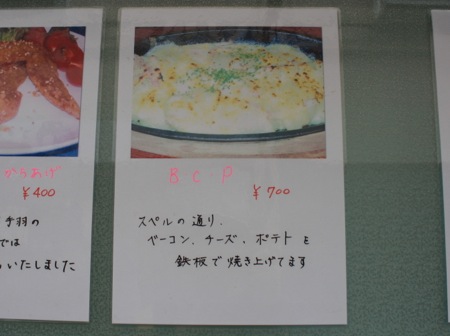 からあげ
¥400
手羽の
では
いたしました
B C P
¥700
スペルの通り、
ベーコン、チーズ、ポテトを
鉄板で焼き上げてます